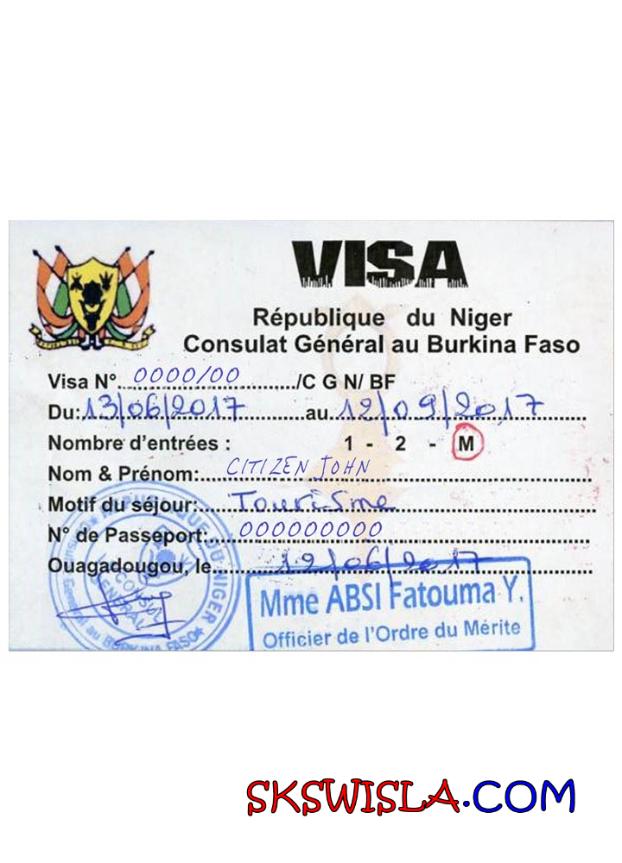 VISA
République du Niger
Consulat Général au Burkina Faso
Visa N° 0000/00 /C G N/ BF
Du: 13/06/2017 au 12/09/2017
Nombre d'entrées : 1 - 2 - M
Nom & Prénom: CITIZEN JOHN
Motif du séjour: Tourisme
N° de Passeport: 000000000
Ouagadougou, le 12/06/2017
Mme ABSI Fatouma Y.
Officier de l'Ordre du Mérite
SKSWISLA.COM